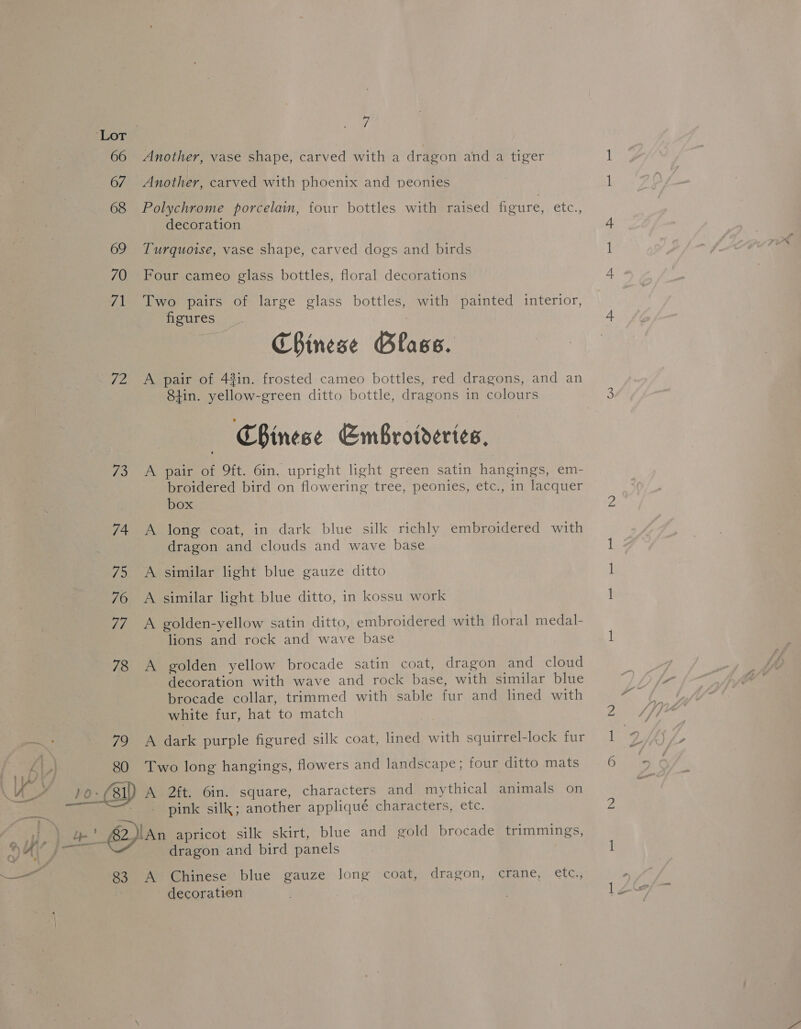 7
Lot
66 Another, vase shape, carved with a dragon and a tiger 1
67 Another, carved with phoenix and peonies 1
68 Polychrome porcelain, four bottles with raised figure, etc.,
decoration 4
69 Turquoise, vase shape, carved dogs and birds 1
70 Four cameo glass bottles, floral decorations 4
71 Two pairs of large glass bottles, with painted interior,
figures 4
Chinese Glass.
72 A pair of 4¾in. frosted cameo bottles, red dragons, and an
8½in. yellow-green ditto bottle, dragons in colours 3
Chinese Embroideries,
73 A pair of 9ft. 6in. upright light green satin hangings, em-
broidered bird on flowering tree, peonies, etc., in lacquer
box 2
74 A long coat, in dark blue silk richly embroidered with
dragon and clouds and wave base 1
75 A similar light blue gauze ditto 1
76 A similar light blue ditto, in kossu work 1
77 A golden-yellow satin ditto, embroidered with floral medal-
lions and rock and wave base 1
78 A golden yellow brocade satin coat, dragon and cloud
decoration with wave and rock base, with similar blue
brocade collar, trimmed with sable fur and lined with
white fur, hat to match 2
79 A dark purple figured silk coat, lined with squirrel-lock fur 1
80 Two long hangings, flowers and landscape; four ditto mats 6
10- 81 A 2ft. 6in. square, characters and mythical animals on
pink silk; another appliqué characters, etc. 2
82 An apricot silk skirt, blue and gold brocade trimmings,
dragon and bird panels 1
83 A Chinese blue gauze long coat, dragon, crane, etc.,
decoration 1